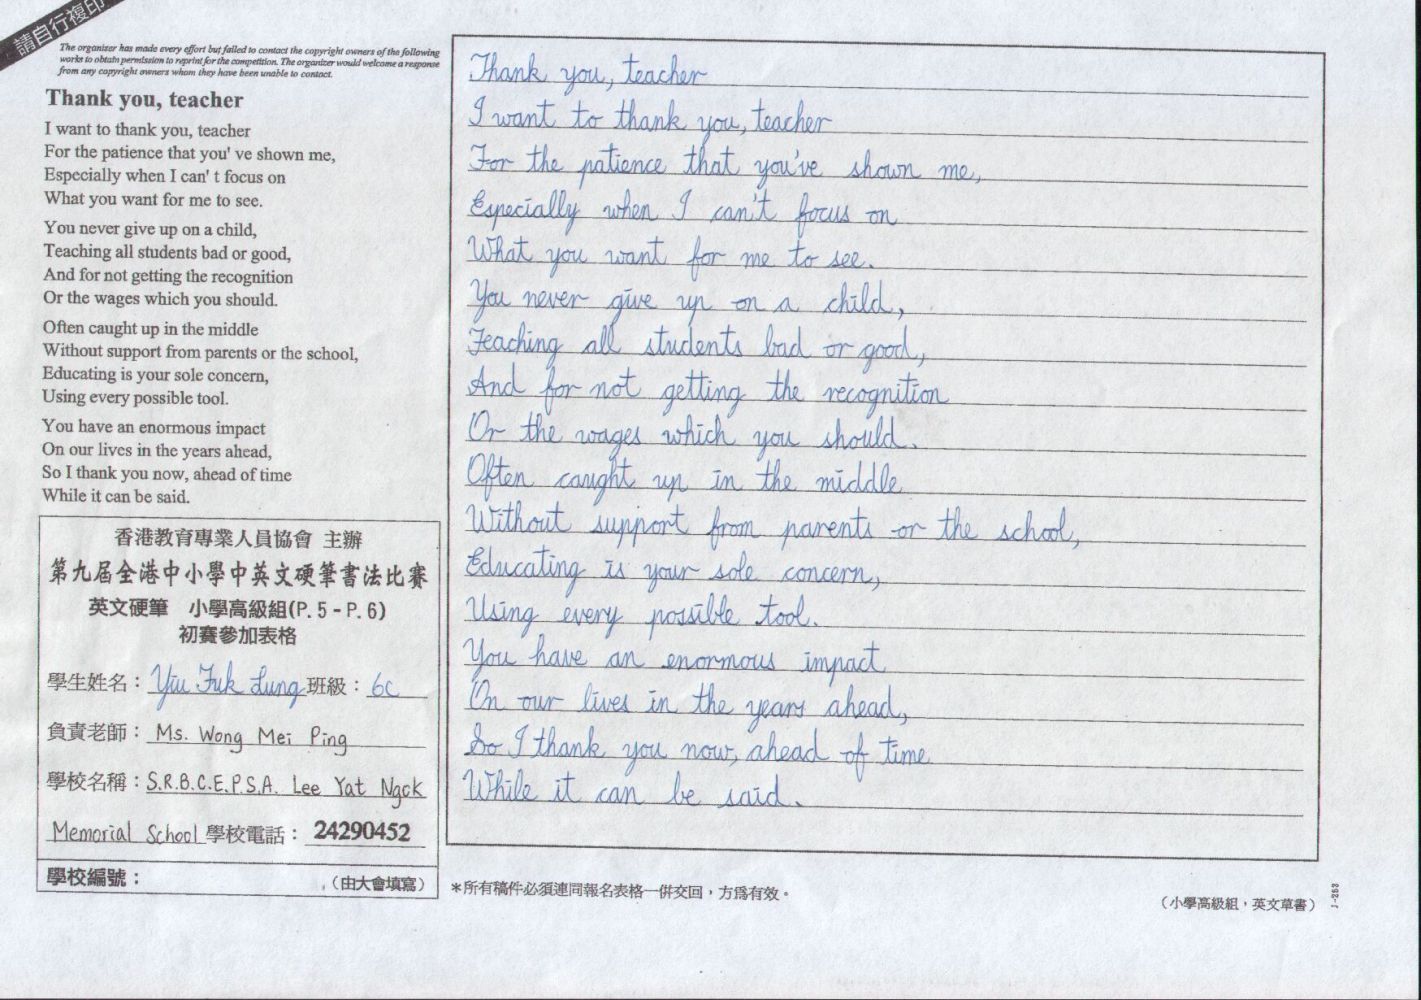 請自行複印
The organizer has made every effort but failed to contact the copyright owners of the following
works to obtain permission to reprint for the competition. The organizer would welcome a response
from any copyright owners whom they have been unable to contact.
Thank you, teacher
I want to thank you, teacher
For the patience that you' ve shown me,
Especially when I can' t focus on
What you want for me to see.
You never give up on a child,
Teaching all students bad or good,
And for not getting the recognition
Or the wages which you should.
Often caught up in the middle
Without support from parents or the school,
Educating is your sole concern,
Using every possible tool.
You have an enormous impact
On our lives in the years ahead,
So I thank you now, ahead of time
While it can be said.
香港教育專業人員協會 主辦
第九屆全港中小學中英文硬筆書法比賽
英文硬筆 小學高級組(P.5-P.6)
初賽參加表格
學生姓名：Yiu Fuk Lung 班級：6C
負責老師：Ms. Wong Mei Ping
學校名稱：S.R.B.C.E.P.S.A. Lee Yat Ngok
Memorial School 學校電話：24290452
學校編號： （由大會填寫）
Thank you, teacher
I want to thank you, teacher
For the patience that you've shown me,
Especially when I can't focus on
What you want for me to see.
You never give up on a child,
Teaching all students bad or good,
And for not getting the recognition
Or the wages which you should.
Often caught up in the middle
Without support from parents or the school,
Educating is your sole concern,
Using every possible tool.
You have an enormous impact
On our lives in the years ahead,
So I thank you now, ahead of time
While it can be said.
＊所有稿件必須連同報名表格一併交回，方為有效。
（小學高級組，英文草書）
J-253